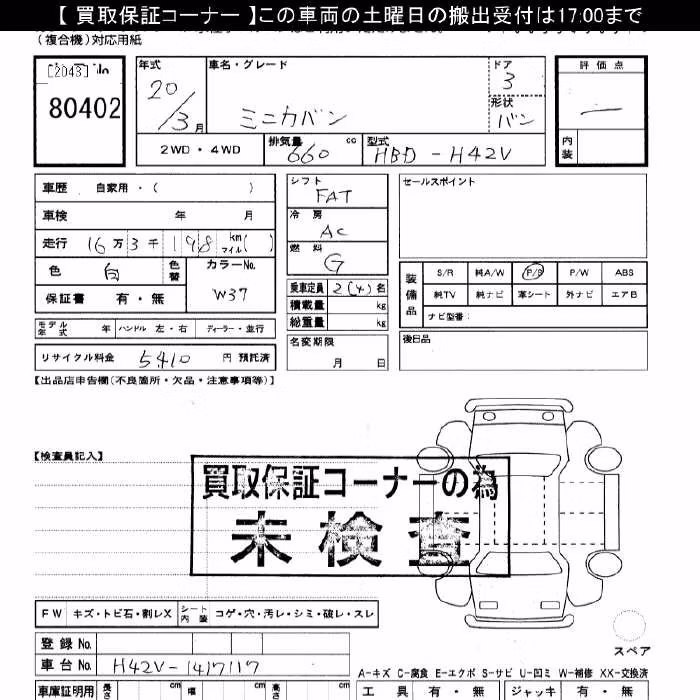 【 買取保証コーナー 】この車両の土曜日の搬出受付は17:00まで
(複合機)対応用紙
[2043] No
80402
年式
20/3月
車名・グレード
ミニカバン
ドア
3
形状
バン
評価点
内装
2WD・4WD
排気量
660 cc
型式
HBD-H42V
車歴 自家用・( )
車検 年 月
走行 16万3千198 km マイル( )
色 白
色替
カラーNo.
W37
保証書 有・無
モデル年式 年 ハンドル 左・右 ディーラー・並行
リサイクル料金 5410 円 預託済
シフト
FAT
冷房
AC
燃料
G
乗車定員 2(4)名
積載量 kg
総重量 kg
名変期限
月 日
セールスポイント
装備品
S/R 純A/W P/S P/W ABS
純TV 純ナビ 革シート 外ナビ エアB
ナビ型番:
後日品
【出品店申告欄(不良箇所・欠品・注意事項等)】
【検査員記入】
買取保証コーナーの為
未検査
FW キズ・トビ石・割レX シート内装 コゲ・穴・汚レ・シミ・破レ・スレ
登録No.
車台No. H42V-1417117
スペア
A-キズ C-腐食 E-エクボ S-サビ U-凹ミ W-補修 XX-交換済
車庫証明用 長さ cm 幅 cm 高さ cm
工具 有・無 ジャッキ 有・無